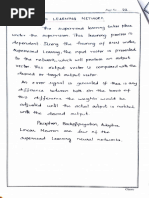 Page No. 22
LEARNING NETWORK
The Supervised learning takes place
under the supervision. This learning process is
dependent. During the training of ANN with
supervised learning, the input vector is presented
to the network, which will produce an output
vector. This output vector is compared with the
desired or target output vector.
An error signal is generated if there is any
difference between both. On the basis of
this difference, the weights would be
adjusted until the actual output is matched
with the desired output.
Perceptron, Backpropagation, Adaptive
Linear Neuron are few of the
Supervised Learning neural networks.